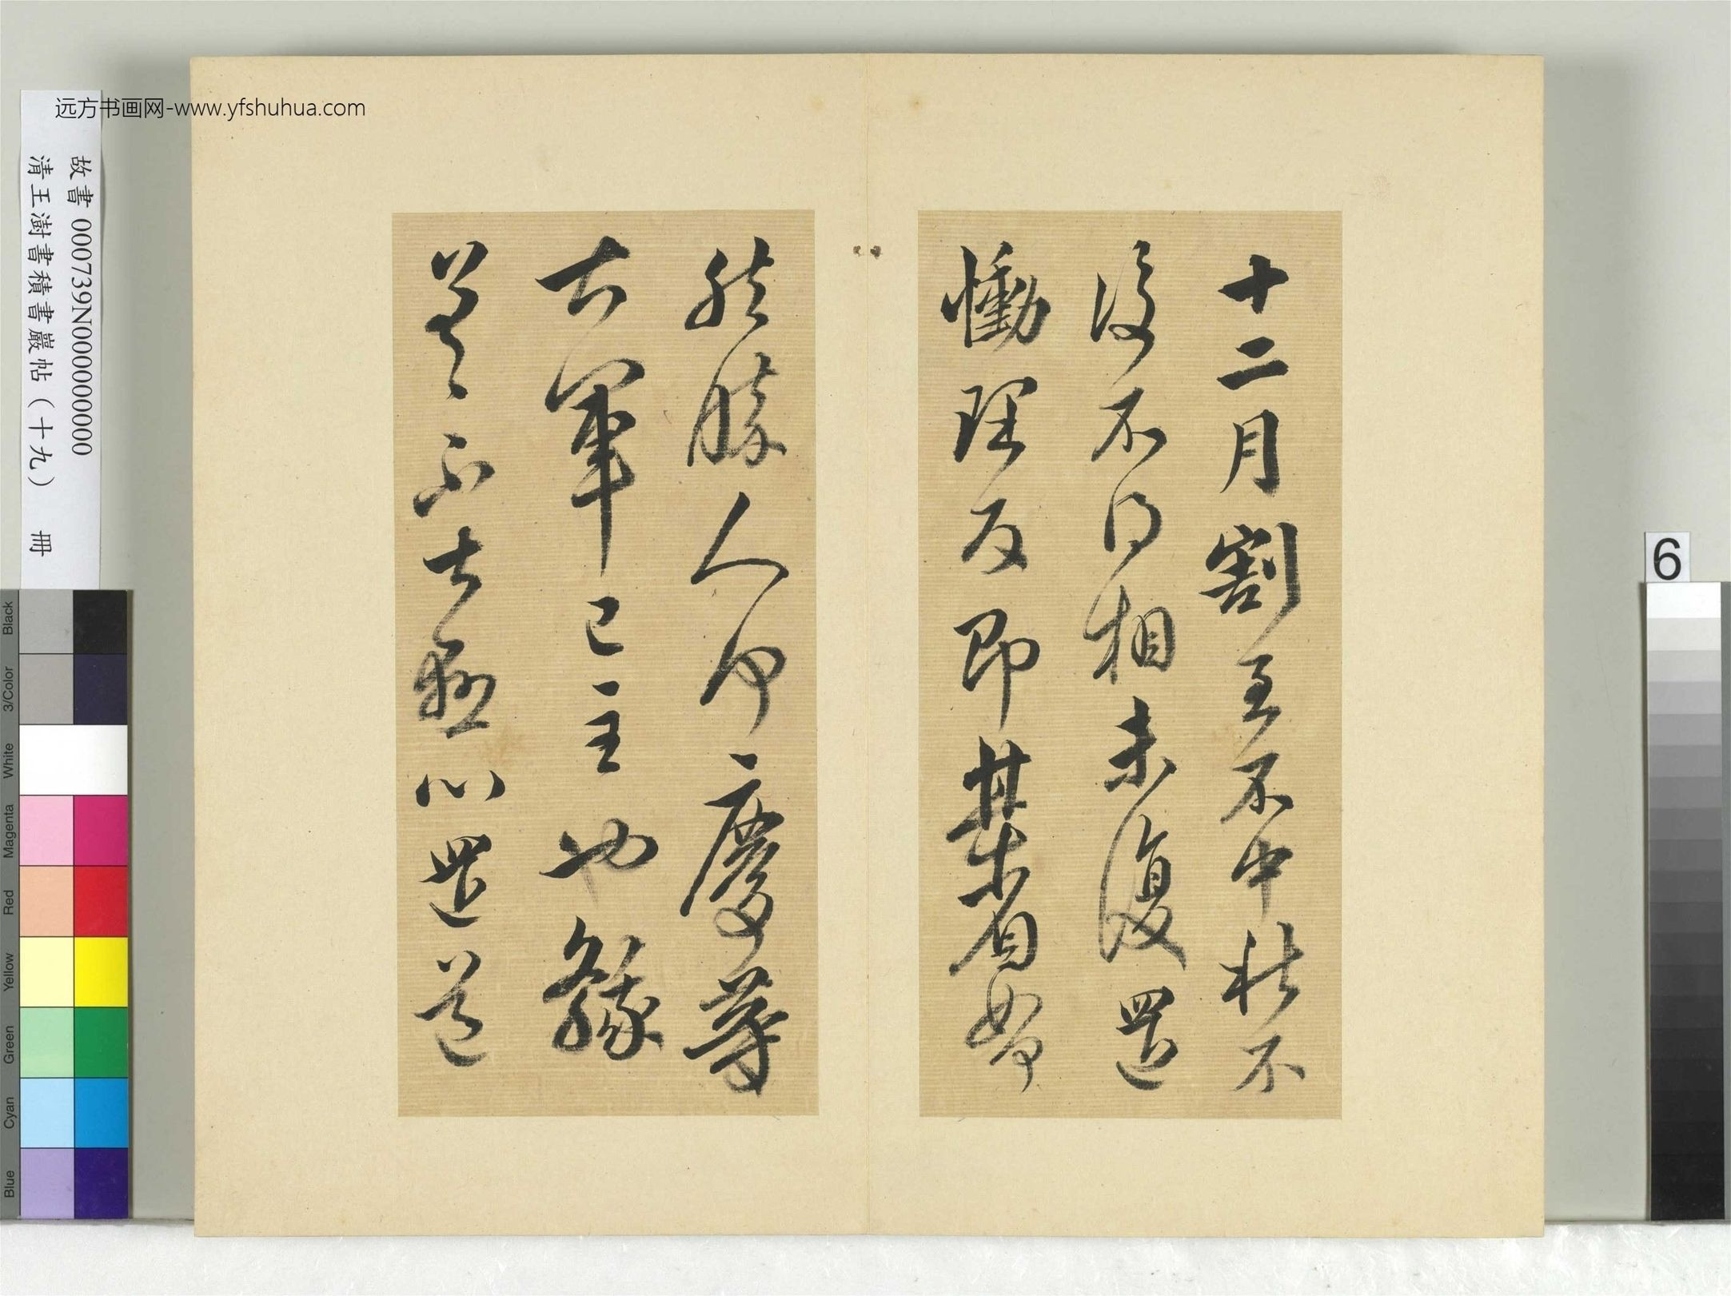 十二月割至不中秋不
復不得相未復還
慟理反即甚省如何
然勝人何慶等
大軍已至也鵝
差不大懸心還道
远方书画网-www.yfshuhua.com
故書 000739N000000000
清王澍書積書巖帖(十九) 冊
6
Black
3/Color
White
Magenta
Red
Yellow
Green
Cyan
Blue